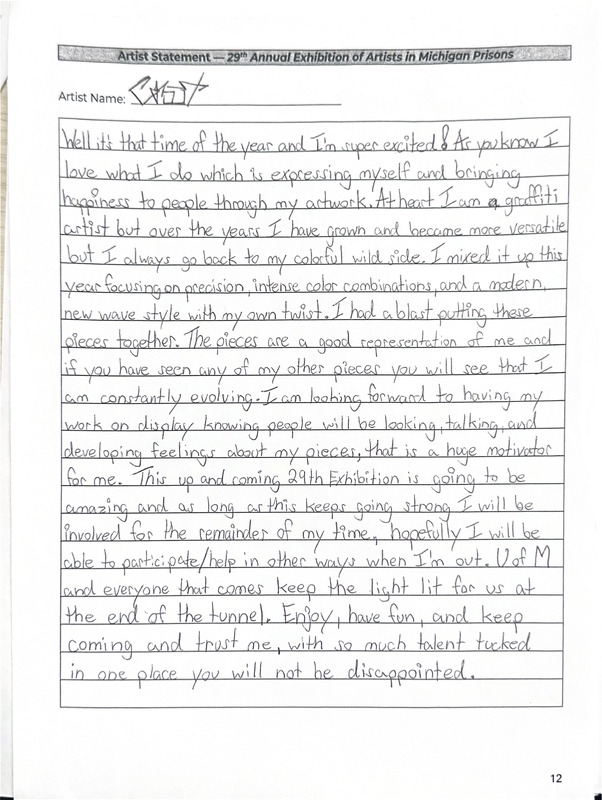 Artist Statement — 29th Annual Exhibition of Artists in Michigan Prisons
Artist Name:
Well it's that time of the year and I'm super excited! As you know I
love what I do which is expressing myself and bringing
happiness to people through my artwork. At heart I am a graffiti
artist but over the years I have grown and became more versatile
but I always go back to my colorful wild side. I mixed it up this
year focusing on precision, intense color combinations, and a modern,
new wave style with my own twist. I had a blast putting these
pieces together. The pieces are a good representation of me and
if you have seen any of my other pieces you will see that I
am constantly evolving. I am looking forward to having my
work on display knowing people will be looking, talking, and
developing feelings about my pieces, that is a huge motivator
for me. This up and coming 29th Exhibition is going to be
amazing and as long as this keeps going strong I will be
involved for the remainder of my time, hopefully I will be
able to participate/help in other ways when I'm out. U of M
and everyone that comes keep the light lit for us at
the end of the tunnel. Enjoy, have fun, and keep
coming and trust me, with so much talent tucked
in one place you will not be disappointed.
12